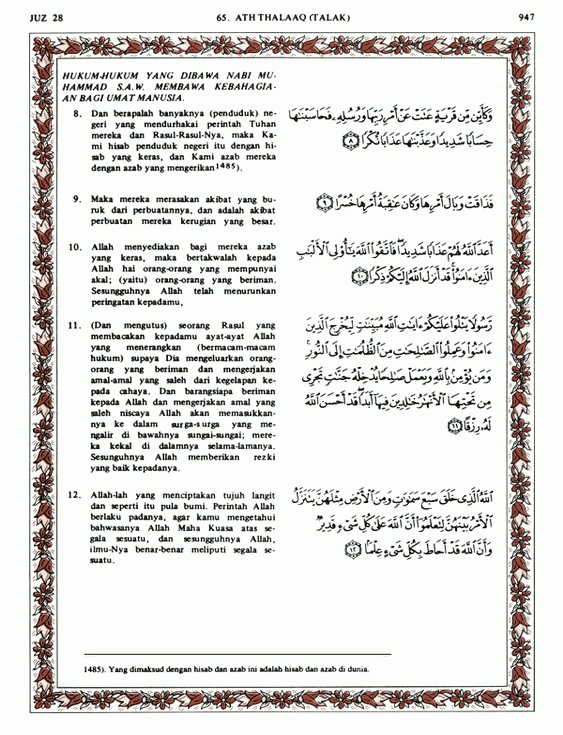 JUZ 28
65. ATH THALAAQ (TALAK)
947
HUKUM-HUKUM YANG DIBAWA NABI MU-
HAMMAD S.A.W. MEMBAWA KEBAHAGIA-
AN BAGI UMAT MANUSIA.
8. Dan berapalah banyaknya (penduduk) ne-
geri yang mendurhakai perintah Tuhan
mereka dan Rasul-Rasul-Nya, maka Ka-
mi hisab penduduk negeri itu dengan hi-
sab yang keras, dan Kami azab mereka
dengan azab yang mengerikan1485).
وَكَأَيِّن مِّن قَرْيَةٍ عَتَتْ عَنْ أَمْرِ رَبِّهَا وَرُسُلِهِ فَحَاسَبْنَٰهَا
حِسَابًا شَدِيدًا وَعَذَّبْنَٰهَا عَذَابًا نُّكْرًا ۝٨
9. Maka mereka merasakan akibat yang bu-
ruk dari perbuatannya, dan adalah akibat
perbuatan mereka kerugian yang besar.
فَذَاقَتْ وَبَالَ أَمْرِهَا وَكَانَ عَٰقِبَةُ أَمْرِهَا خُسْرًا ۝٩
10. Allah menyediakan bagi mereka azab
yang keras, maka bertakwalah kepada
Allah hai orang-orang yang mempunyai
akal; (yaitu) orang-orang yang beriman.
Sesungguhnya Allah telah menurunkan
peringatan kepadamu,
أَعَدَّ ٱللَّهُ لَهُمْ عَذَابًا شَدِيدًا فَٱتَّقُوا۟ ٱللَّهَ يَٰٓأُو۟لِى ٱلْأَلْبَٰبِ
ٱلَّذِينَ ءَامَنُوا۟ قَدْ أَنزَلَ ٱللَّهُ إِلَيْكُمْ ذِكْرًا ۝١٠
11. (Dan mengutus) seorang Rasul yang
membacakan kepadamu ayat-ayat Allah
yang menerangkan (bermacam-macam
hukum) supaya Dia mengeluarkan orang-
orang yang beriman dan mengerjakan
amal-amal yang saleh dari kegelapan ke-
pada cahaya. Dan barangsiapa beriman
kepada Allah dan mengerjakan amal yang
saleh niscaya Allah akan memasukkan-
nya ke dalam surga-surga yang me-
ngalir di bawahnya sungai-sungai; mere-
ka kekal di dalamnya selama-lamanya.
Sesungguhnya Allah memberikan rezki
yang baik kepadanya.
رَّسُولًا يَتْلُوا۟ عَلَيْكُمْ ءَايَٰتِ ٱللَّهِ مُبَيِّنَٰتٍ لِّيُخْرِجَ ٱلَّذِينَ
ءَامَنُوا۟ وَعَمِلُوا۟ ٱلصَّٰلِحَٰتِ مِنَ ٱلظُّلُمَٰتِ إِلَى ٱلنُّورِ
وَمَن يُؤْمِنۢ بِٱللَّهِ وَيَعْمَلْ صَٰلِحًا يُدْخِلْهُ جَنَّٰتٍ تَجْرِى
مِن تَحْتِهَا ٱلْأَنْهَٰرُ خَٰلِدِينَ فِيهَآ أَبَدًا قَدْ أَحْسَنَ ٱللَّهُ
لَهُۥ رِزْقًا ۝١١
12. Allah-lah yang menciptakan tujuh langit
dan seperti itu pula bumi. Perintah Allah
berlaku padanya, agar kamu mengetahui
bahwasanya Allah Maha Kuasa atas se-
gala sesuatu, dan sesungguhnya Allah,
ilmu-Nya benar-benar meliputi segala se-
suatu.
ٱللَّهُ ٱلَّذِى خَلَقَ سَبْعَ سَمَٰوَٰتٍ وَمِنَ ٱلْأَرْضِ مِثْلَهُنَّ يَتَنَزَّلُ
ٱلْأَمْرُ بَيْنَهُنَّ لِتَعْلَمُوٓا۟ أَنَّ ٱللَّهَ عَلَىٰ كُلِّ شَىْءٍ قَدِيرٌ
وَأَنَّ ٱللَّهَ قَدْ أَحَاطَ بِكُلِّ شَىْءٍ عِلْمًا ۝١٢
1485). Yang dimaksud dengan hisab dan azab ini adalah hisab dan azab di dunia.